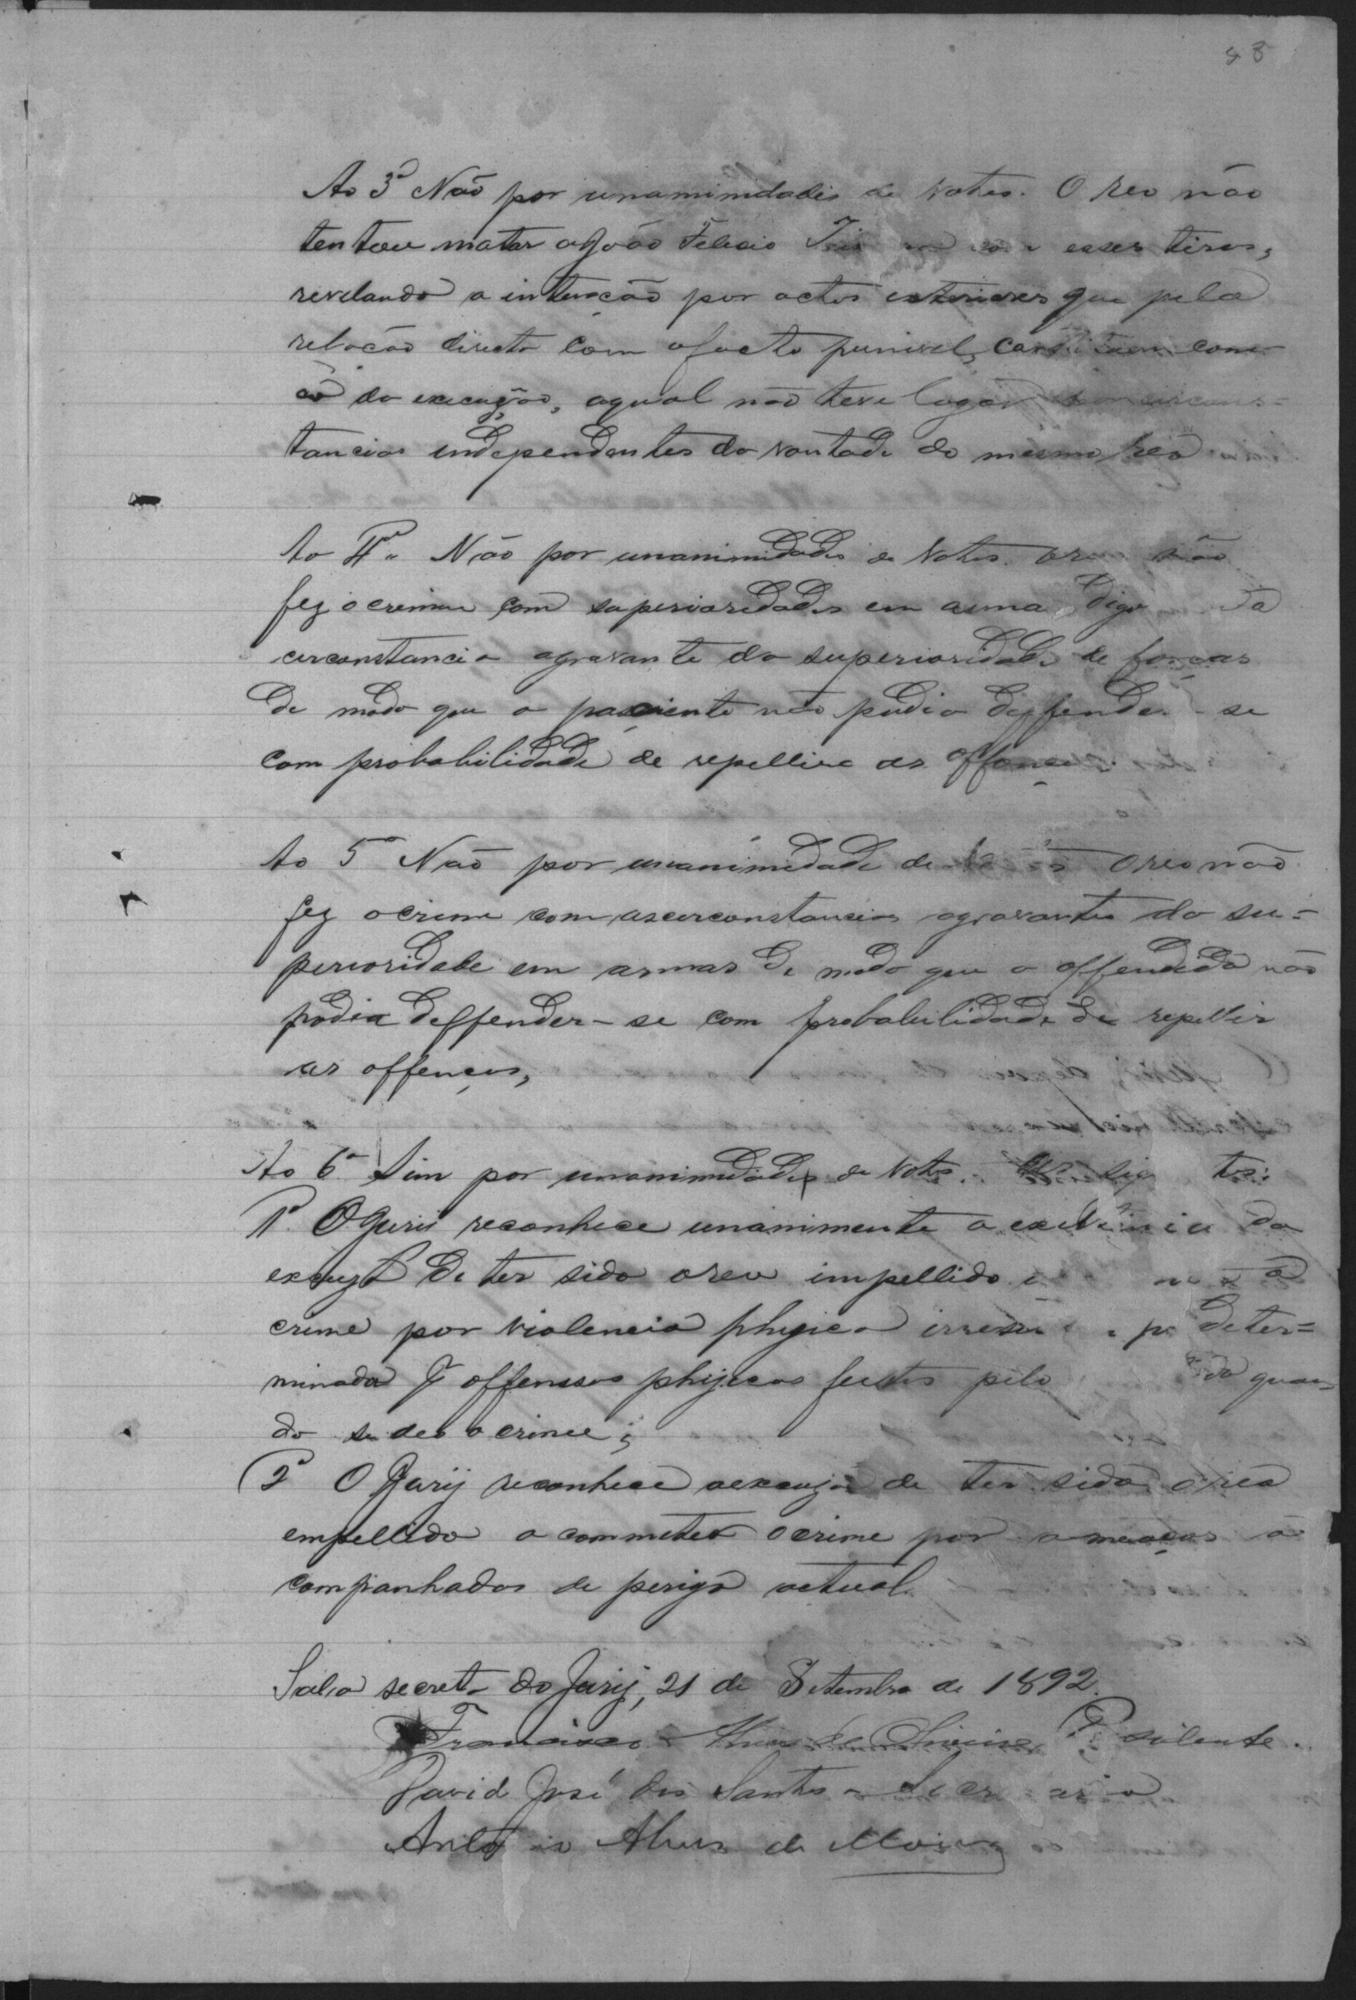 Ao 3º Não por unamimidades de votos. O reo não
tentou matar a João Felicio esses tiros,
revelando a intenção por actos exteriores que pela
relação directa com o facto punivel, constituem come-
ço da execução, a qual não teve lugar por circuns=
tancias independentes da vontade do mesmo reo
Ao 4º Não por unanimidades de votos. o reo não
fez o crime com superioridades em arma, digo da
circonstancia agravante da superioridade de forças
de modo que o paciente não podia deffender-se
com probabilidade de repellir as offenças.
Ao 5º Não por unanimidade de votos O reo não
fez o crime com as cerconstancias agravantes da su=
perioridade em armas de modo que o offendido não
podia deffender-se com probabilidade de repellir
as offenças,
Ao 6º Sim por unanimidades de votos.
1º O Jury reconhece unanimente a existencia da
de ter sido o reo impellido
crime por violencia physica deter=
minada p offensas physicas feitas pelo quan
do se deo o crime;
2º O Jury reconhece de ter sido o reo
empellido a commeter o crime por ameaças a
companhados de perigo actual.
Sala secreta do Jury, 21 de Setembro de 1892.
Francisco Alves de Oliveira Presidente.
David José dos Santos Secretario
Antonio Alves de